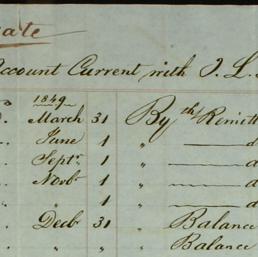 ate
Account Current with J. L.
1849
March 31 By th/ Remitt
June 1 " d
Septr. 1 " d
Novbr 1 " d
" 1 " d
Decbr 31 " Balance
" " Balance